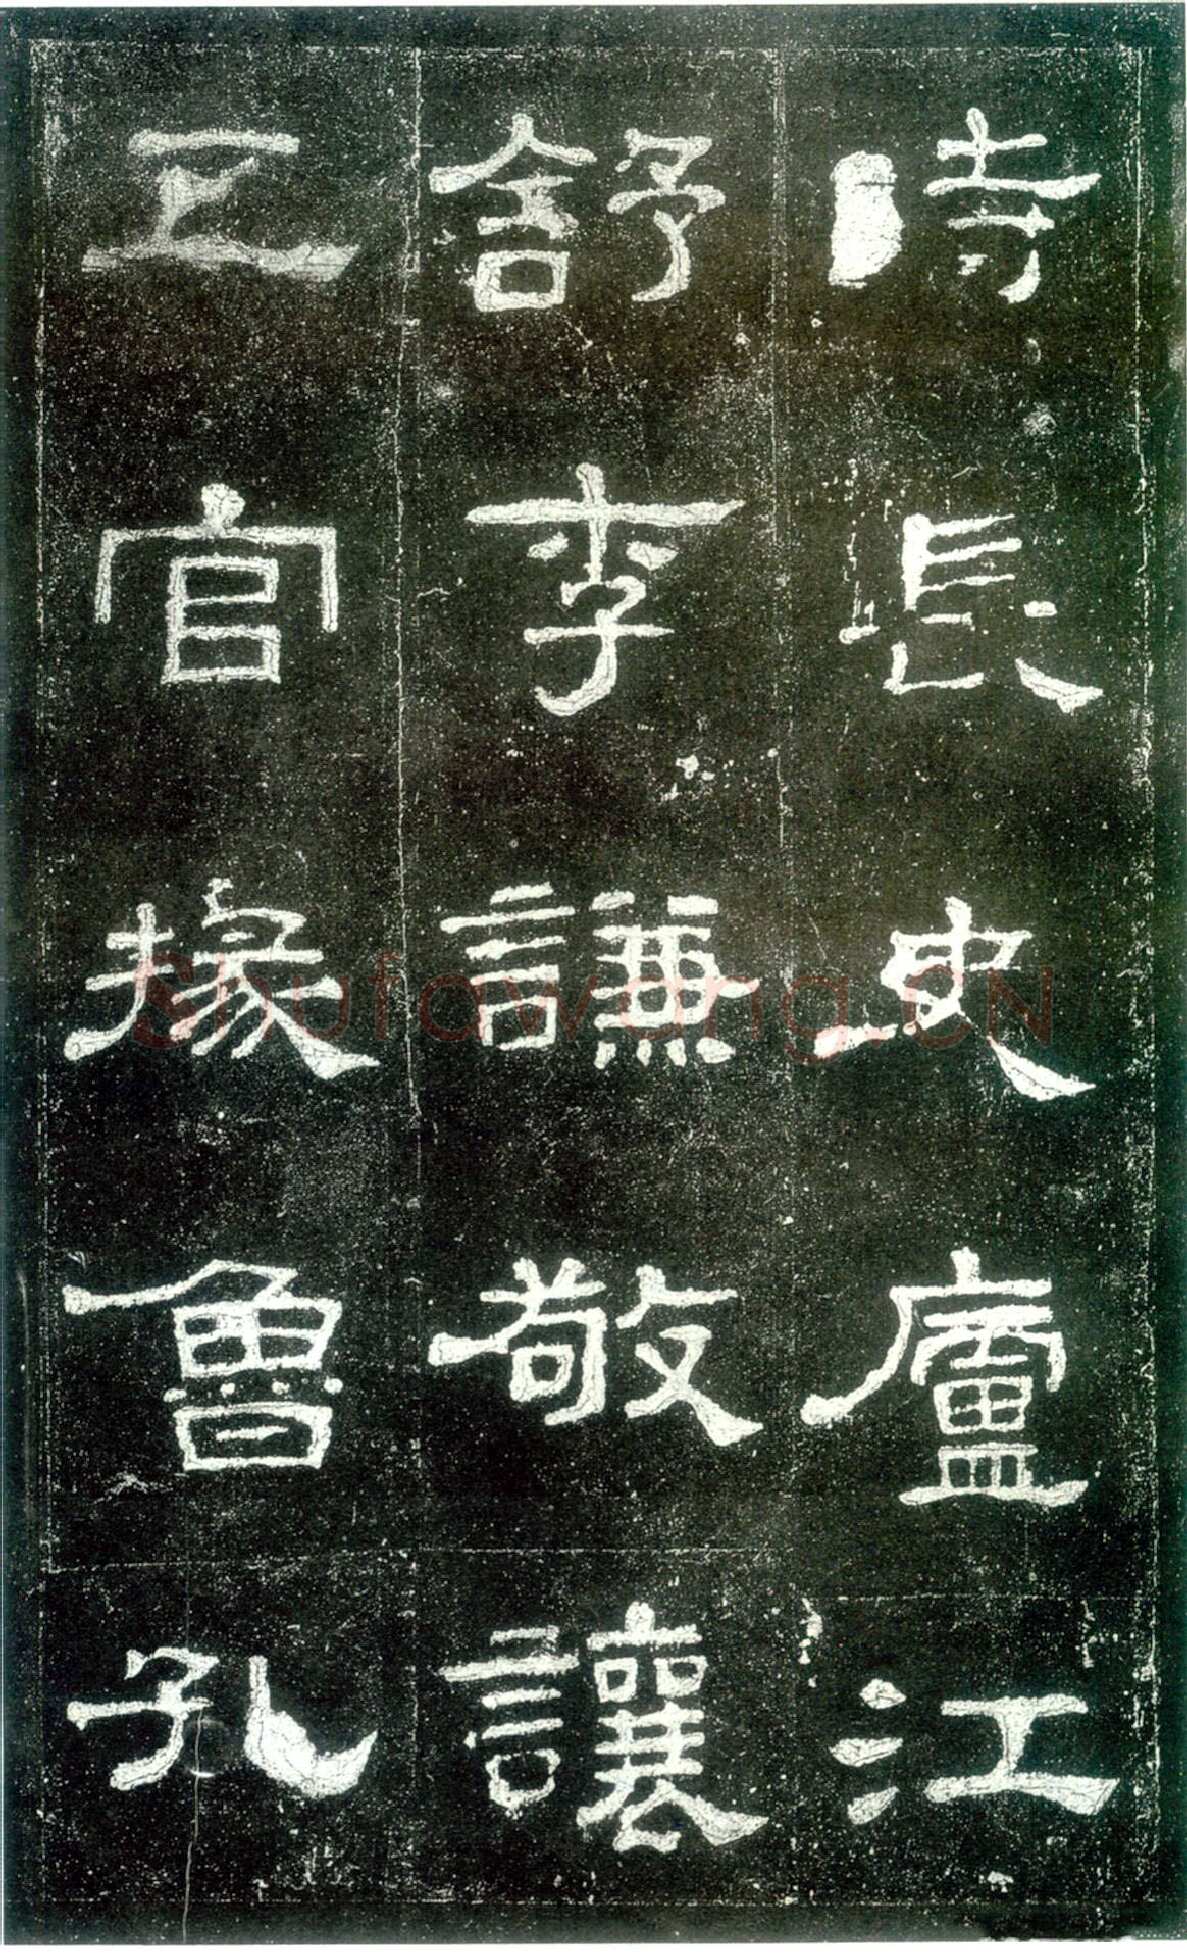 時長史廬江
舒李謙敬讓
五官掾魯孔
Shufawang.CN